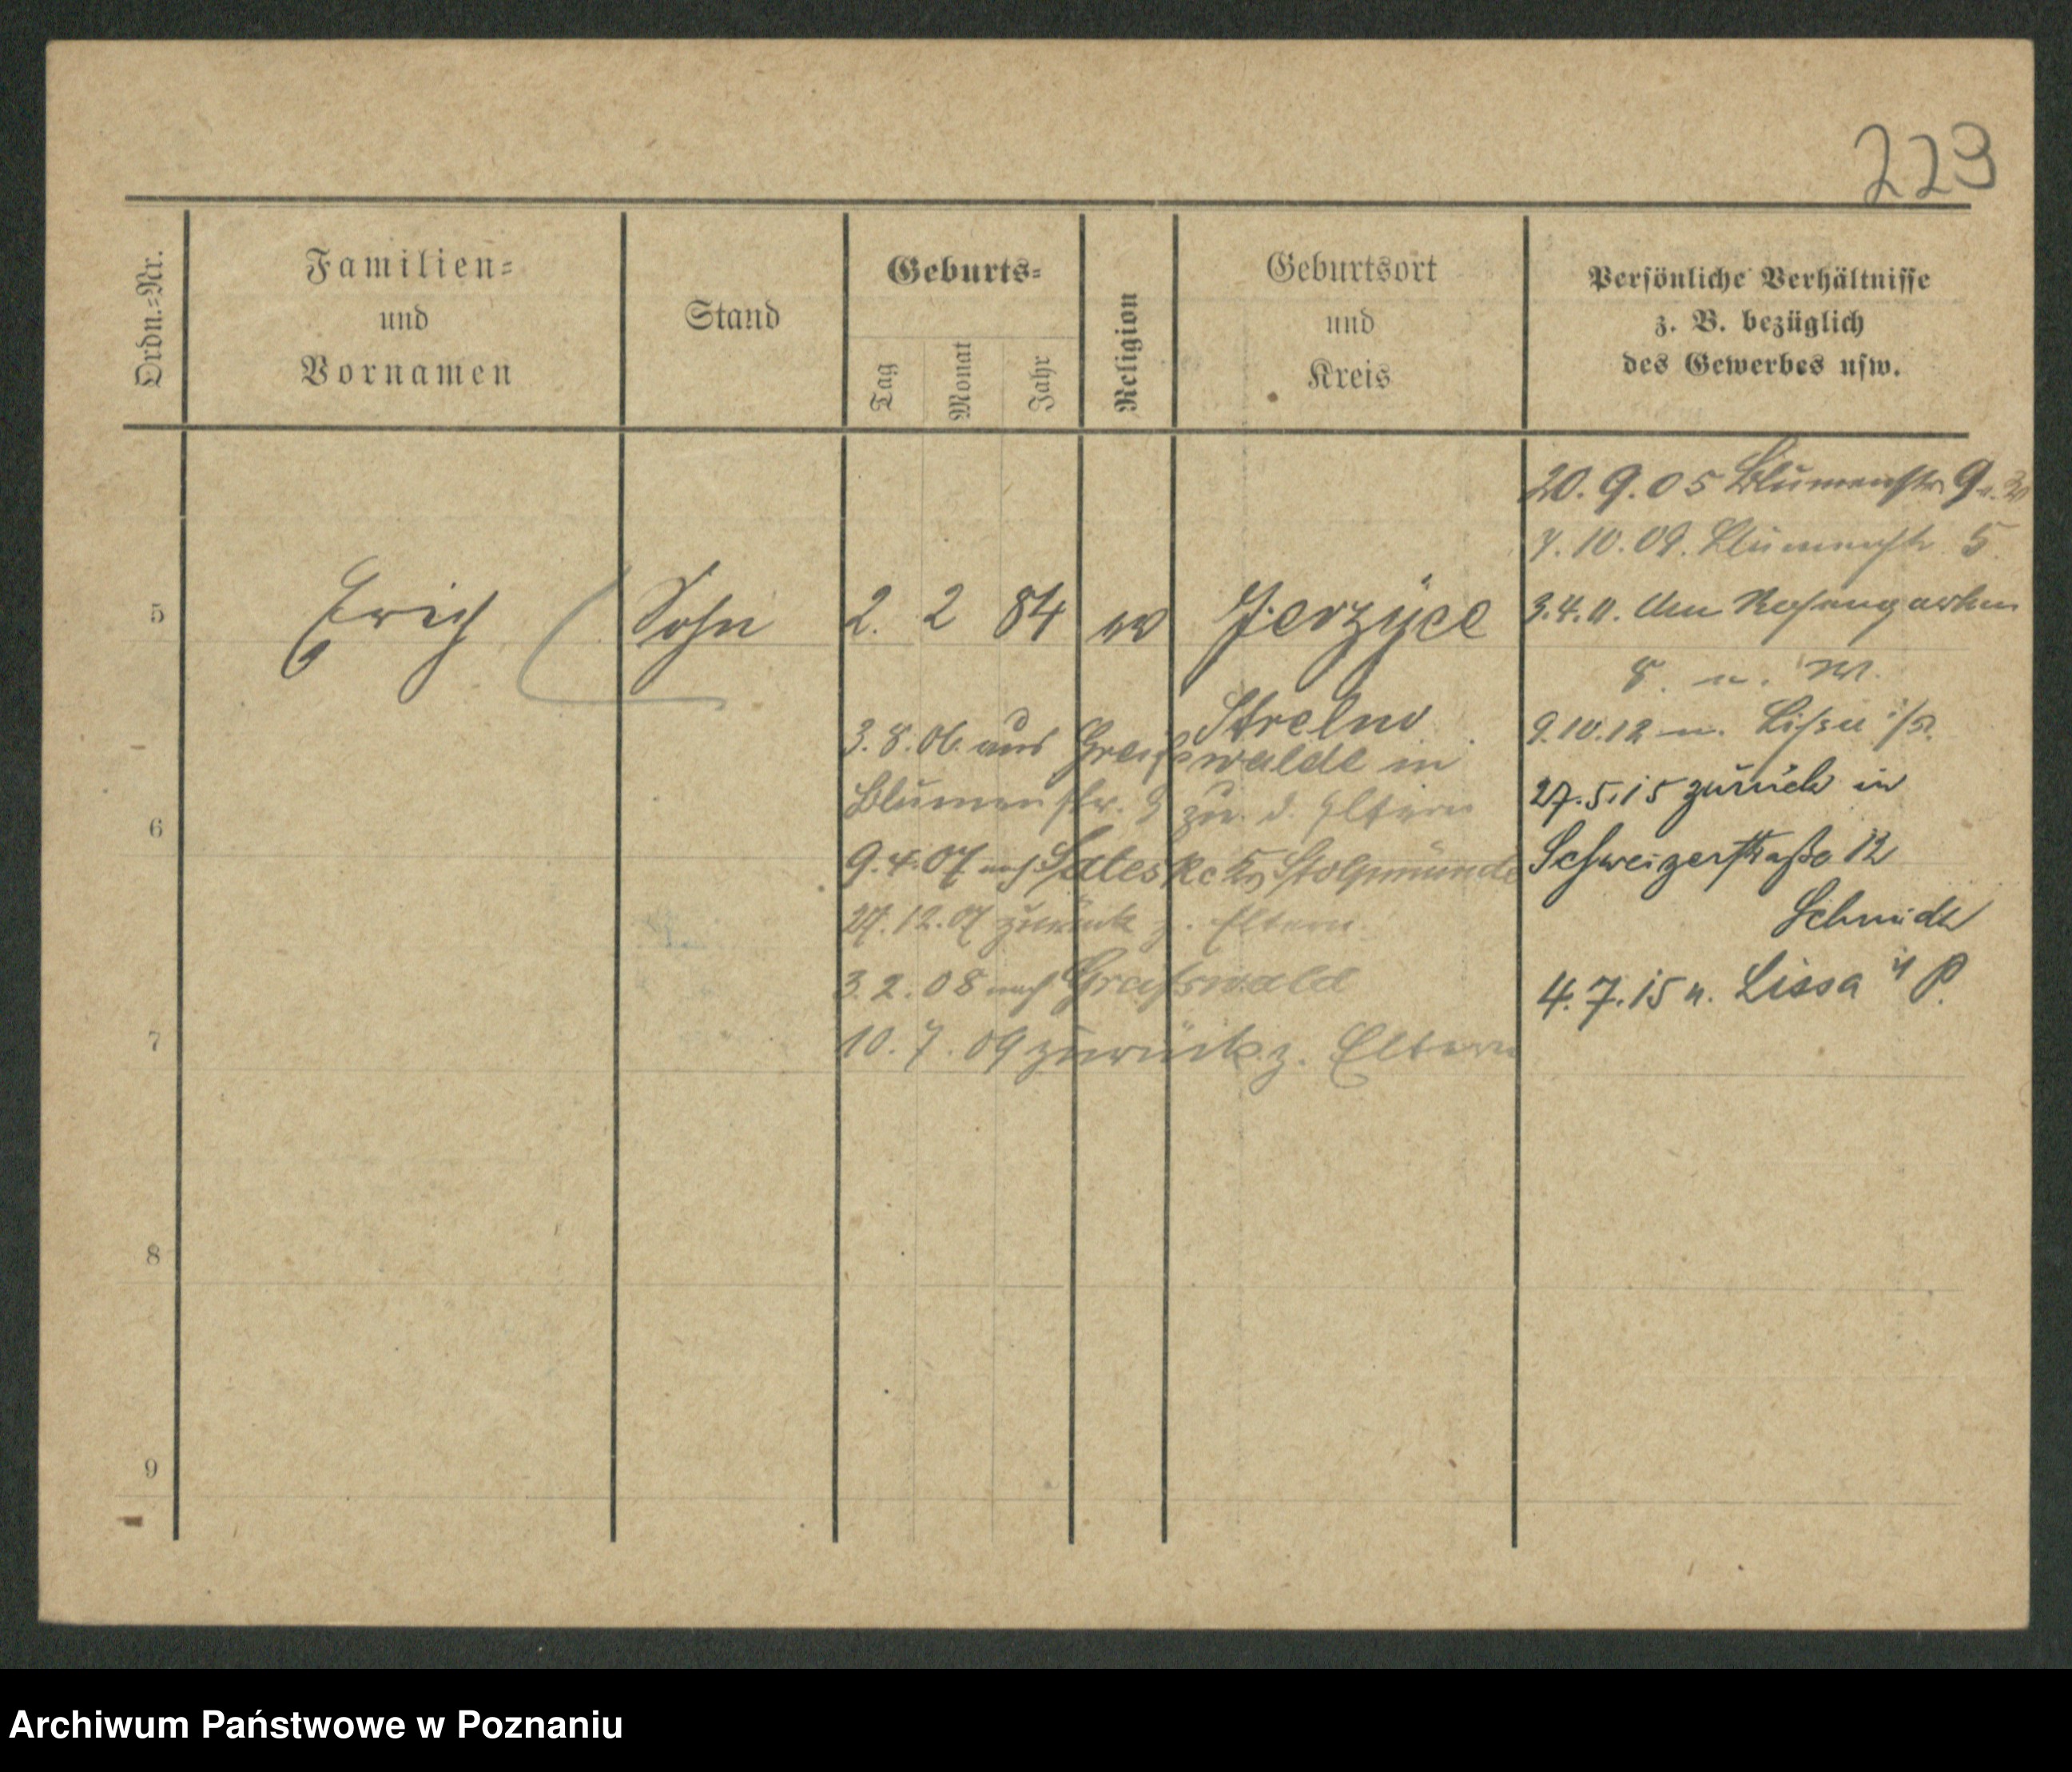 223
Ordn.=Nr.
Familien=
und
Vornamen
Stand
Geburts=
Tag
Monat
Jahr
Religion
Geburtsort
und
Kreis
Persönliche Verhältnisse
z. B. bezüglich
des Gewerbes usw.
5
Erich
Sohn
2. 2 84
Jerzyce
Strelno
3.8.06. aus Greifswalde in
Blumenstr. 9 zu. d. Eltern
9.4.07 nach Stolpmünde
27.12.07 zurück z. Eltern
3.2.08 nach Greifswald
10.7.09 zurück z. Eltern
20.9.05 Blumenstr. 9
7.10.09. Blumenstr. 5.
3.4.11. Am Rosengarten
8. n. W.
9.10.12 n. Lissa i/P.
27.5.15 zurück in
Schweizerstraße 12
Schmidt
4.7.15 n. Lissa i/ P.
6
7
8
9
Archiwum Państwowe w Poznaniu